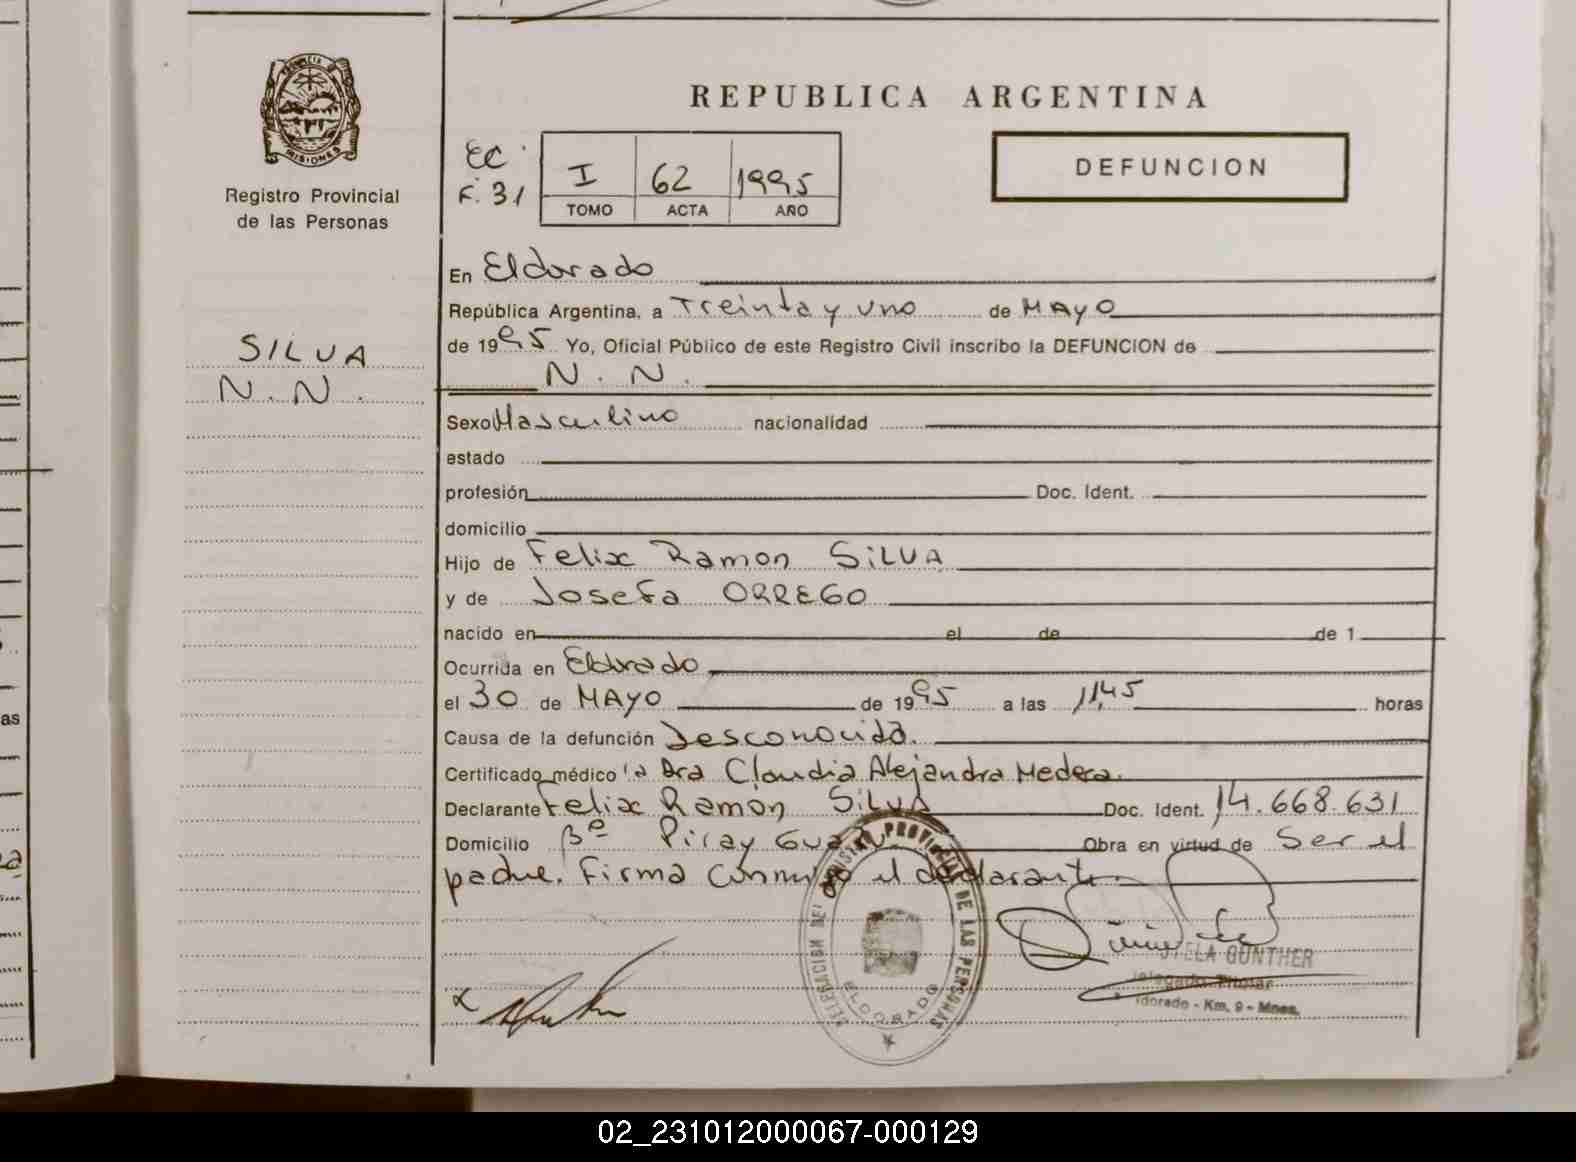 PROVINCIA D
MISIONES
Registro Provincial
de las Personas
SILVA
N.N.
REPUBLICA ARGENTINA
EC
F. 31
I 62 1995
TOMO ACTA AÑO
DEFUNCION
En Eldorado
República Argentina, a Treinta y uno de MAYO
de 1995 Yo, Oficial Público de este Registro Civil inscribo la DEFUNCION de
N. N.
Sexo Masculino nacionalidad
estado
profesión Doc. Ident.
domicilio
Hijo de Felix Ramon SILVA
y de Josefa ORREGO
nacido en el de de 1
Ocurrida en Eldorado
el 30 de MAYO de 1995 a las 11,45 horas
Causa de la defunción Desconocida.
Certificado médico la Dra Claudia Alejandra Medera.
Declarante Felix Ramon SILVA Doc. Ident. 14.668.631
Domicilio Bº Piray Guazu Obra en virtud de ser el
padre. Firma conmigo el declarante.
DELEGACION DEL REGISTRO PROVINCIAL DE LAS PERSONAS
ELDORADO
STELA GUNTHER
Delegado Titular
ldorado - Km. 9 - Mnes.
02_231012000067-000129